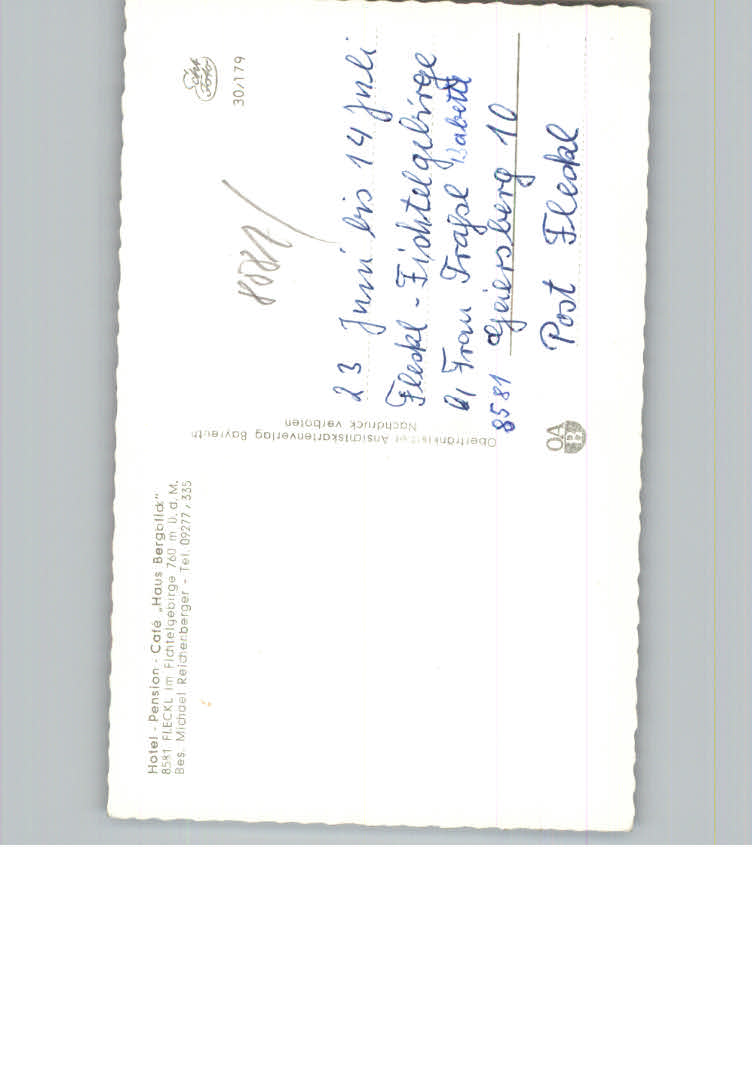 Hotel - Pension - Café „Haus Bergblick"
8581 FLECKL im Fichtelgebirge 760 m ü. d. M.
Bes. Michael Reichenberger - Tel. 09277 / 335
Oberfränkischer Ansichtskartenverlag Bayreuth
Nachdruck verboten
Echt
Foto
30/179
8581
23 Juni bis 14 Juli
Fleckl - Fichtelgebirge
b/ Frau Traßl Babette
8581 Geiersberg 10
Post Fleckl
OA
B